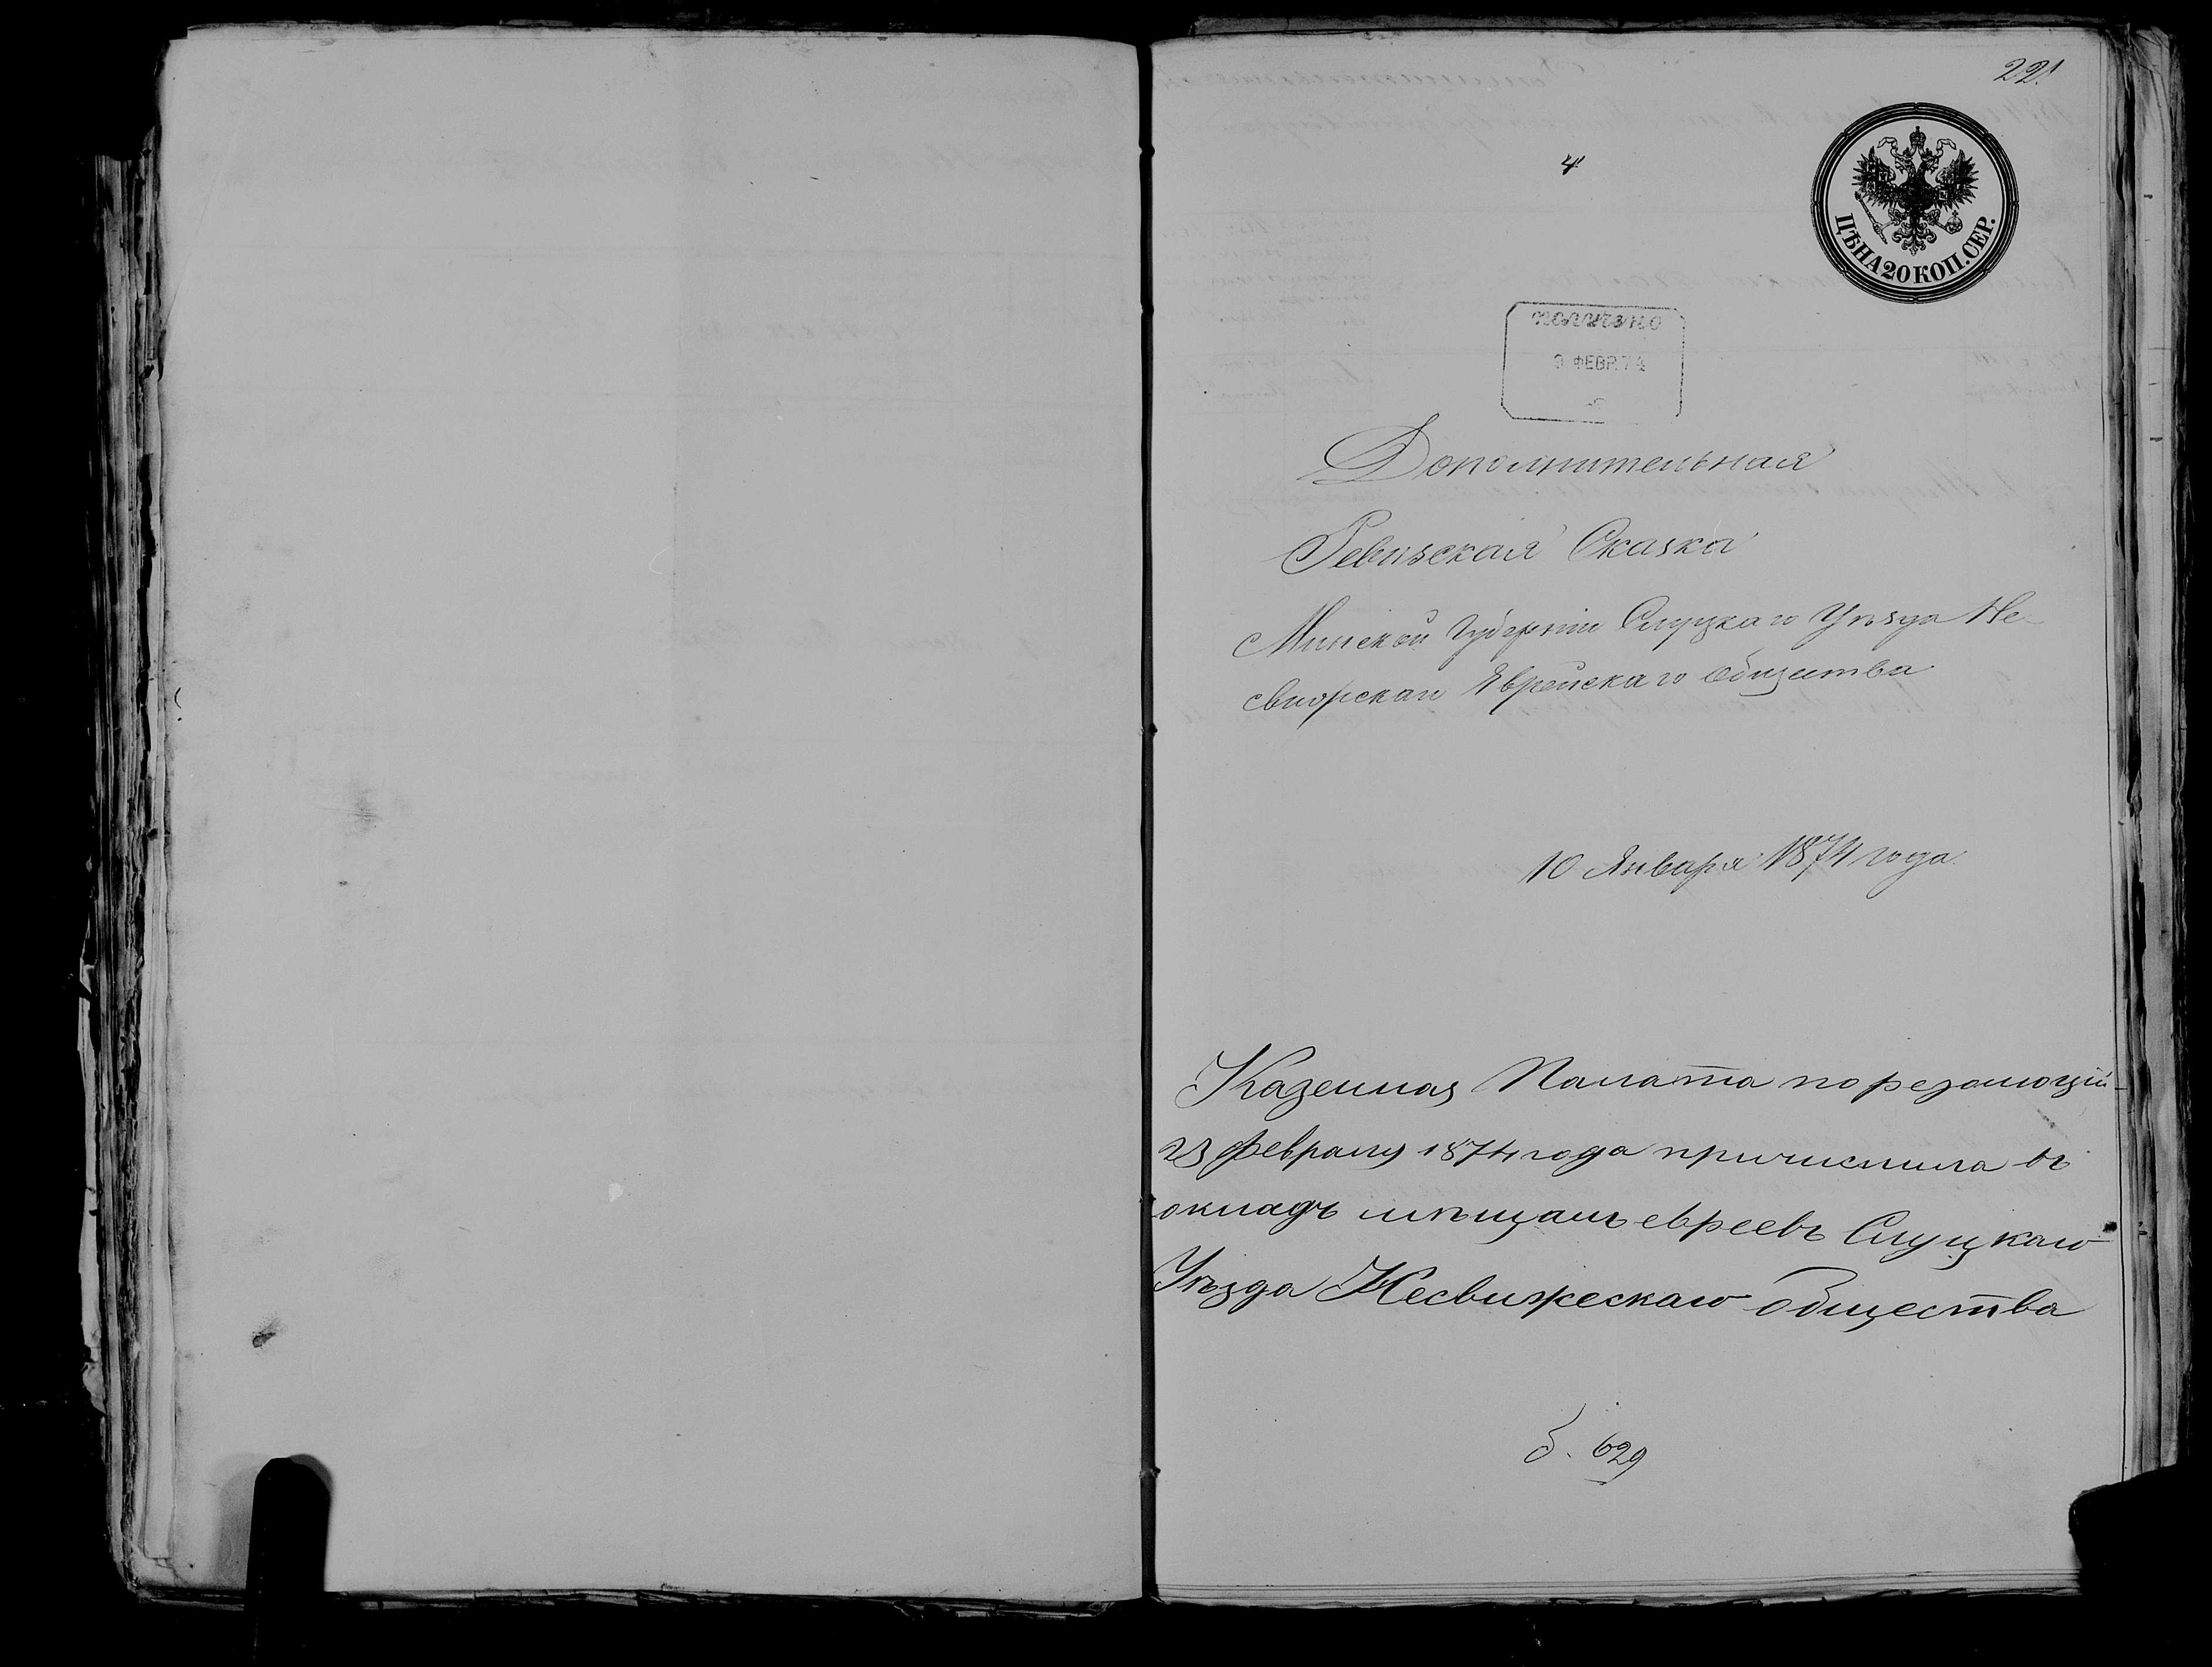 22.
4
ЦѢНА 20 КОП. СЕР.
ПОЛУЧЕНО
9 ФЕВР. 74
Дополнительная
Ревизская Сказка
Минской Губерніи Слуцкаго Уѣзда Не-
свижскаго Яврейскаго Общества
10 Января 1874 года.
Казенная Палата по резолюціи
23 февраля 1874 года причислила въ
окладъ мѣщанъ евреевъ Слуцкаго
Уѣзда Несвижескаго общества
629